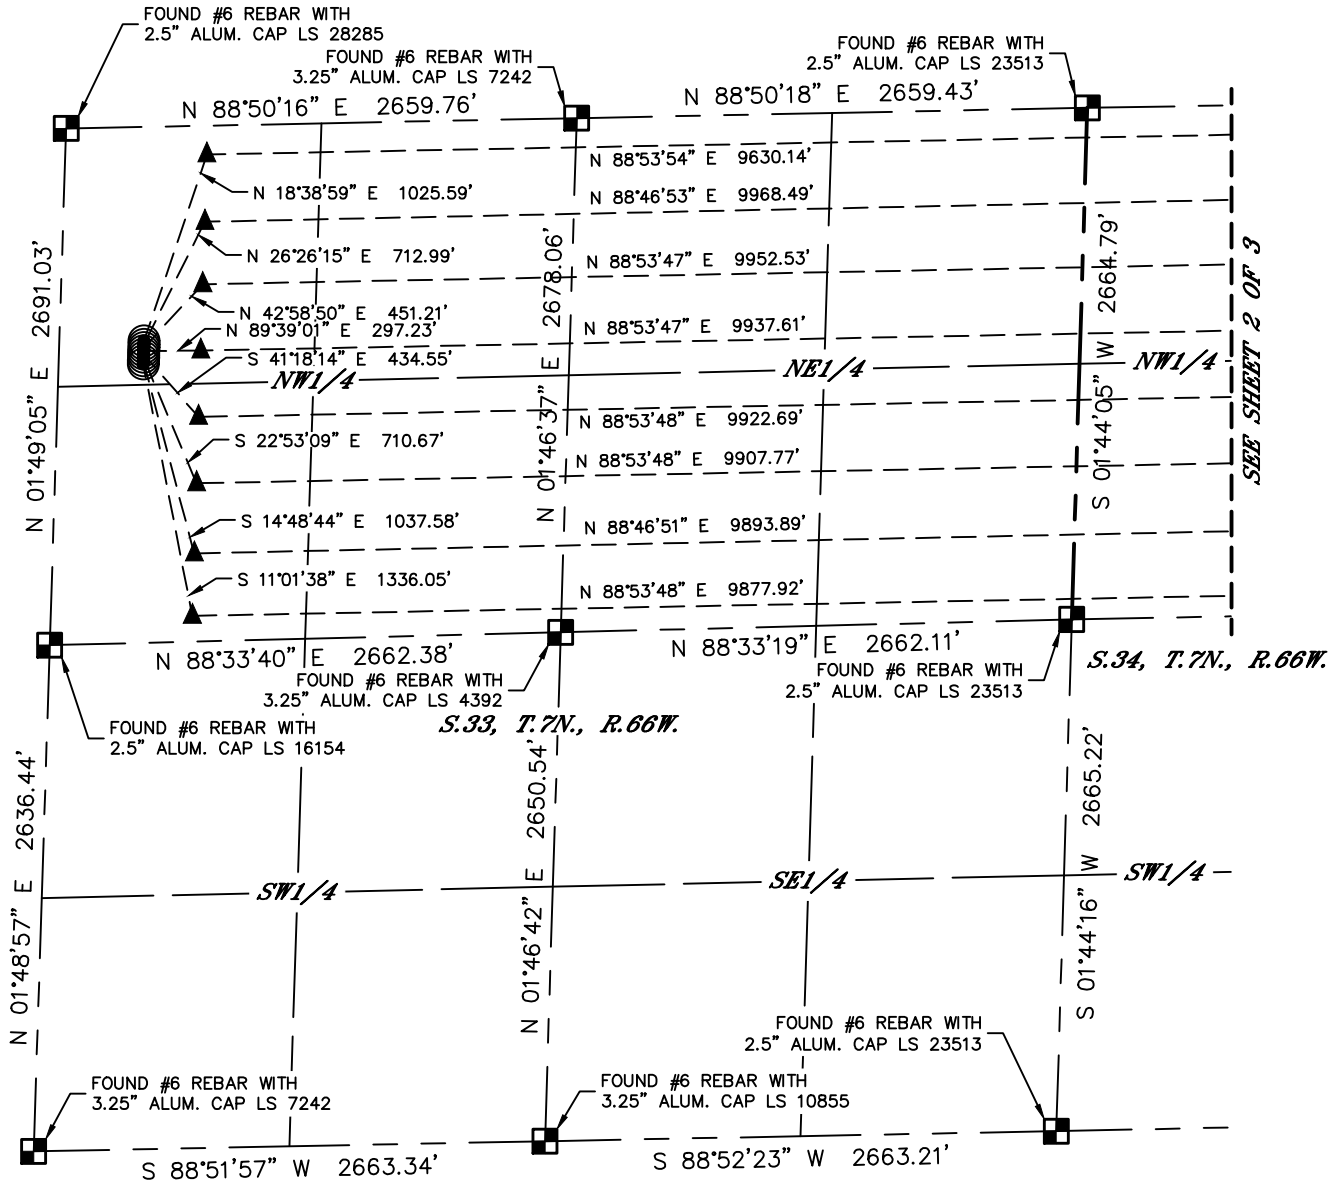 FOUND #6 REBAR WITH
2.5" ALUM. CAP LS 28285
FOUND #6 REBAR WITH
3.25" ALUM. CAP LS 7242
FOUND #6 REBAR WITH
2.5" ALUM. CAP LS 23513
N 88°50'16" E 2659.76'
N 88°50'18" E 2659.43'
N 88°53'54" E 9630.14'
N 18°38'59" E 1025.59'
N 88°46'53" E 9968.49'
N 26°26'15" E 712.99'
N 88°53'47" E 9952.53'
N 42°58'50" E 451.21'
N 89°39'01" E 297.23'
N 88°53'47" E 9937.61'
S 41°18'14" E 434.55'
NW1/4
NE1/4
NW1/4
N 01°49'05" E 2691.03'
N 01°46'37" E 2678.06'
S 01°44'05" W 2664.79'
SEE SHEET 2 OF 3
N 88°53'48" E 9922.69'
S 22°53'09" E 710.67'
N 88°53'48" E 9907.77'
S 14°48'44" E 1037.58'
N 88°46'51" E 9893.89'
S 11°01'38" E 1336.05'
N 88°53'48" E 9877.92'
N 88°33'40" E 2662.38'
N 88°33'19" E 2662.11'
FOUND #6 REBAR WITH
3.25" ALUM. CAP LS 4392
FOUND #6 REBAR WITH
2.5" ALUM. CAP LS 23513
S.34, T.7N., R.66W.
FOUND #6 REBAR WITH
2.5" ALUM. CAP LS 16154
S.33, T.7N., R.66W.
N 01°48'57" E 2636.44'
N 01°46'42" E 2650.54'
S 01°44'16" W 2665.22'
SW1/4
SE1/4
SW1/4
FOUND #6 REBAR WITH
2.5" ALUM. CAP LS 23513
FOUND #6 REBAR WITH
3.25" ALUM. CAP LS 7242
FOUND #6 REBAR WITH
3.25" ALUM. CAP LS 10855
S 88°51'57" W 2663.34'
S 88°52'23" W 2663.21'